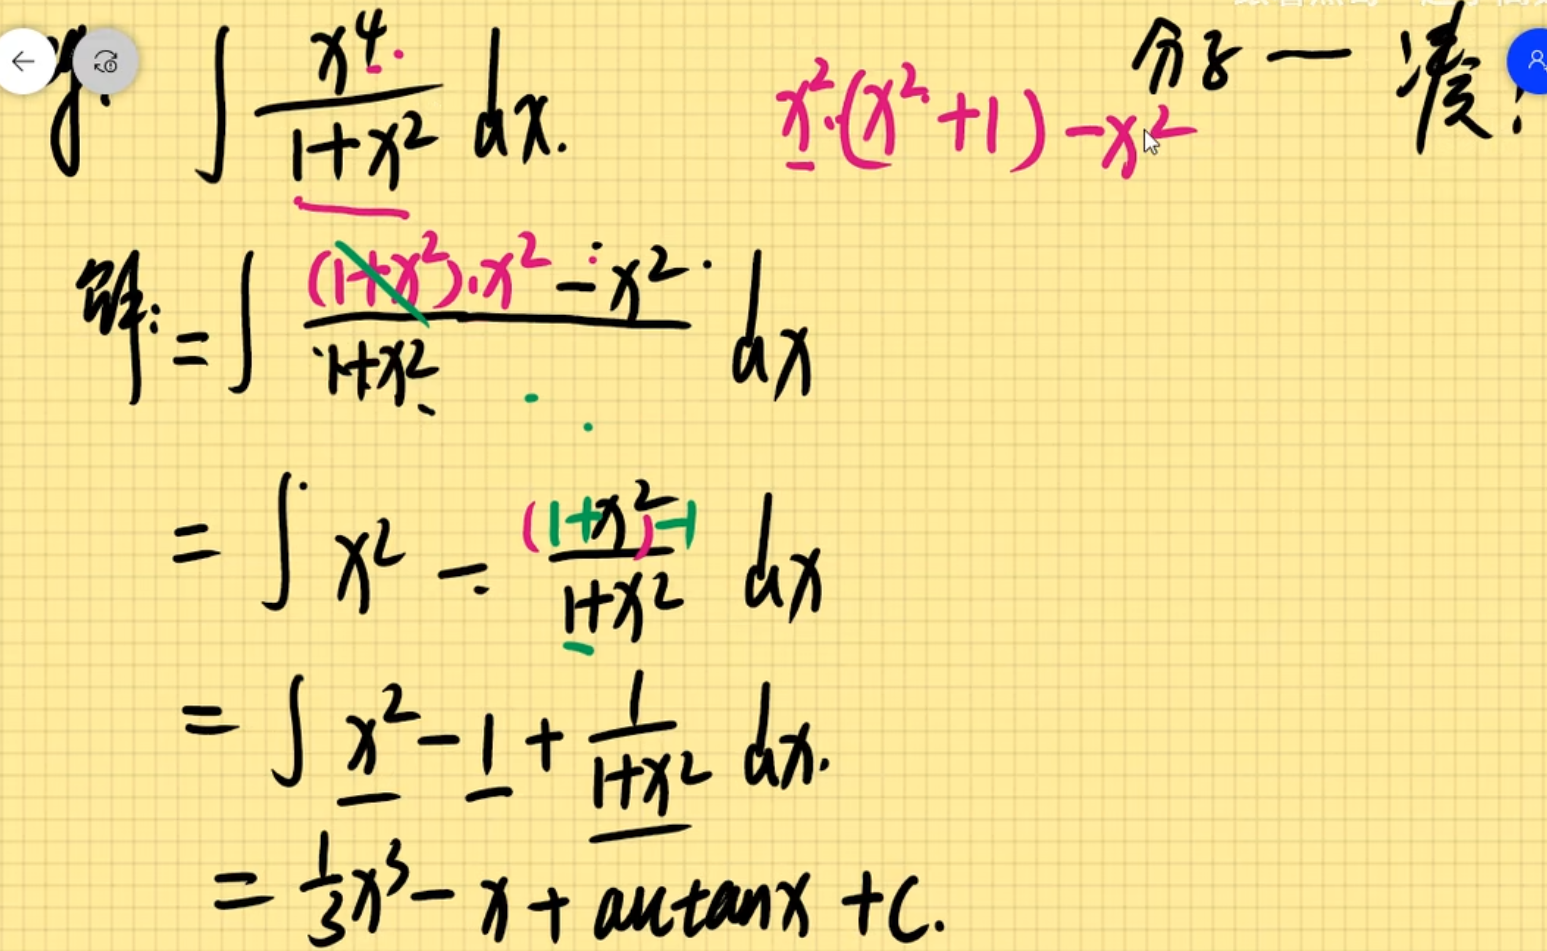 ∫ x⁴/(1+x²) dx. x²·(x²+1)-x² 分子一凑!
解: = ∫ ((1+x²)·x²-x²)/(1+x²) dx
= ∫ x² - ((1+x²)-1)/(1+x²) dx
= ∫ x²-1+1/(1+x²) dx.
= 1/3 x³-x+arctanx+C.